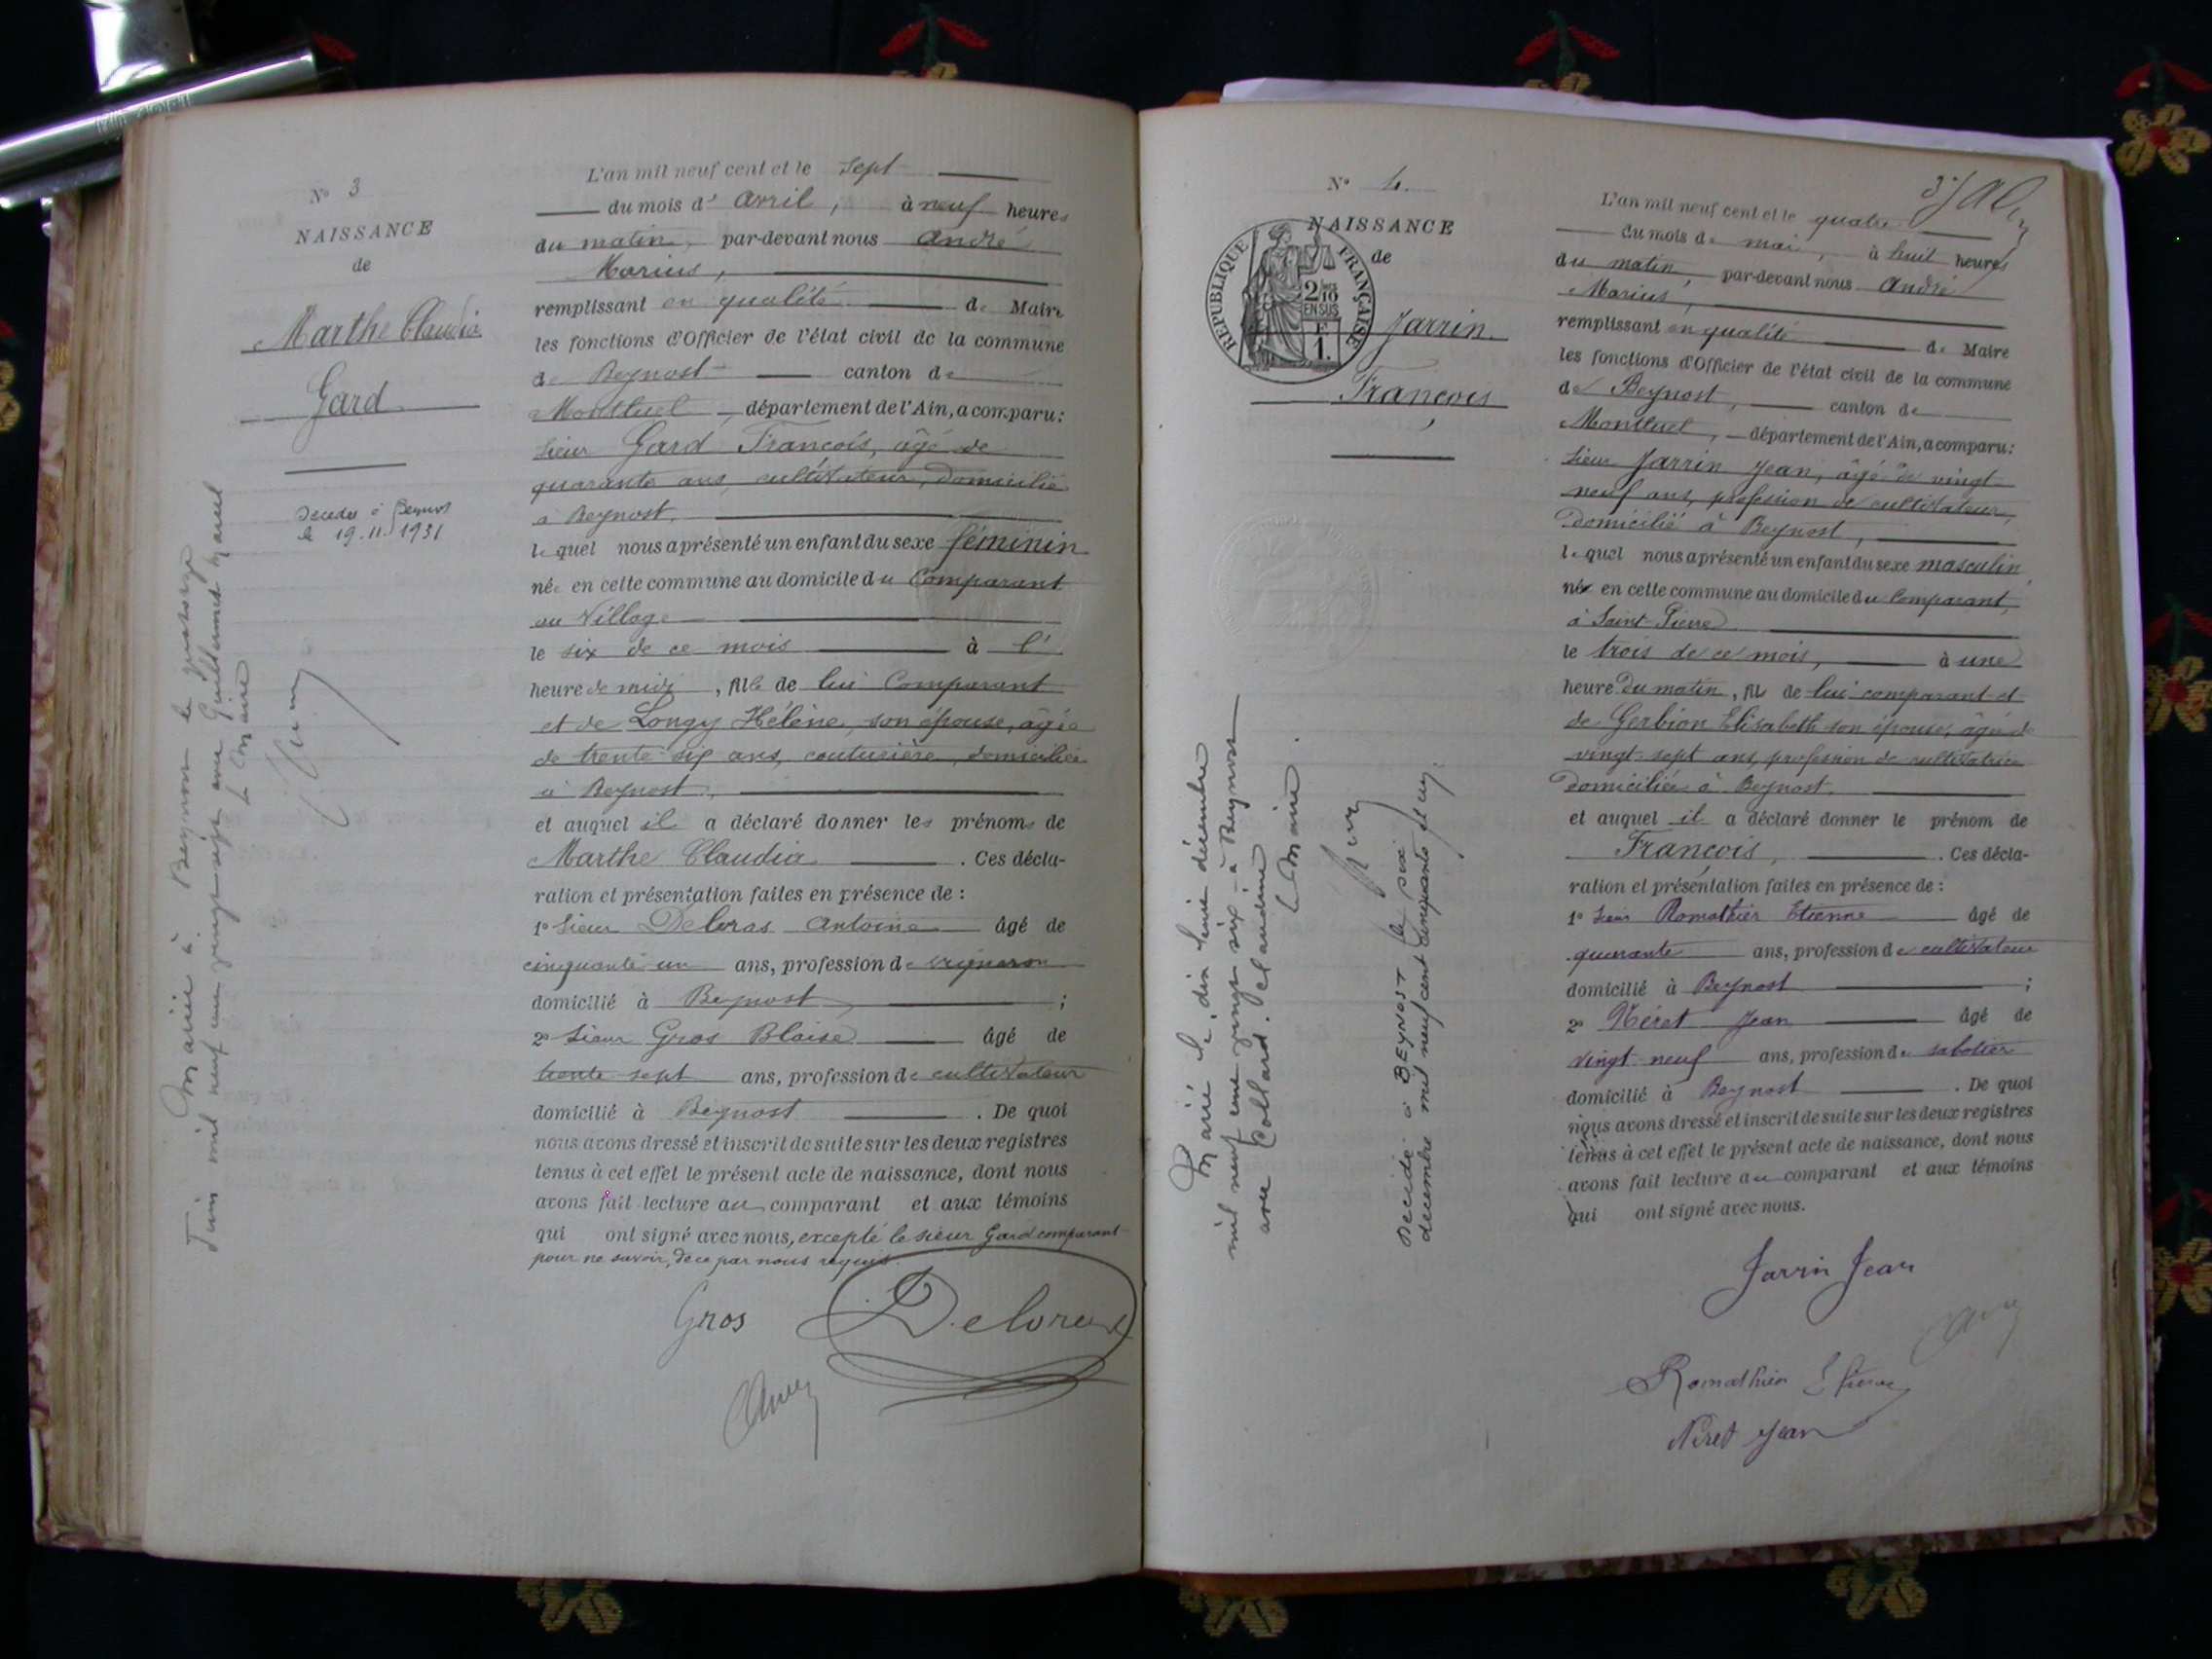 N° 3
NAISSANCE
de
Marthe Claudia
Gard
Décédée à Beynost
le 19.11.1931
Mariée à Beynost le quatorze
Juin mil neuf cent vingt-six avec Guillermet Marcel
Le Maire
L'an mil neuf cent et le sept
du mois d' avril, à neuf heures
du matin, par-devant nous André
Marius,
remplissant en qualité de Maire
les fonctions d'Officier de l'état civil de la commune
de Beynost canton de
Montluel département de l'Ain, a comparu:
sieur Gard François, âgé de
quarante ans, cultivateur, domicilié
à Beynost,
lequel nous a présenté un enfant du sexe féminin
née en cette commune au domicile du Comparant
au Village
le six de ce mois à l'
heure de midi, fille de lui Comparant
et de Longy Hélène, son épouse, âgée
de trente six ans, couturière, domiciliée
à Beynost,
et auquel il a déclaré donner les prénoms de
Marthe Claudia. Ces décla-
ration et présentation faites en présence de :
1° Sieur Deloras Antoine âgé de
cinquante un ans, profession de vigneron
domicilié à Beynost ;
2° Sieur Gros Blaise âgé de
trente sept ans, profession de cultivateur
domicilié à Beynost. De quoi
nous avons dressé et inscrit de suite sur les deux registres
tenus à cet effet le présent acte de naissance, dont nous
avons fait lecture au comparant et aux témoins
qui ont signé avec nous, excepté le sieur Gard comparant
pour ne savoir, de ce par nous requis.
Gros Deloras
N° 4.
NAISSANCE
de
REPUBLIQUE FRANÇAISE
2/10
EN SUS
1.
Jarrin
François
Marié le dix huit décembre
mil neuf cent vingt six à Beynost
avec Collard Claudine
Le Maire.
Décédé à BEYNOST le six
décembre mil neuf cent cinquante et un.
L'an mil neuf cent et le quatre
du mois de mai, à huit heures
du matin, par-devant nous André
Marius,
remplissant en qualité de Maire
les fonctions d'Officier de l'état civil de la commune
de Beynost, canton de
Montluel, département de l'Ain, a comparu:
sieur Jarrin Jean, âgé de vingt
neuf ans, profession de cultivateur,
domicilié à Beynost,
lequel nous a présenté un enfant du sexe masculin
né en cette commune au domicile du Comparant,
à Saint Pierre
le trois de ce mois, à une
heure du matin, fils de lui comparant et
de Gerbion Elisabeth son épouse, âgée de
vingt-sept ans, profession de cultivatrice
domiciliée à Beynost,
et auquel il a déclaré donner le prénom de
François,. Ces décla-
ration et présentation faites en présence de :
1° Sieur Romathier Etienne âgé de
quarante ans, profession de cultivateur
domicilié à Beynost ;
2° Néret Jean âgé de
vingt-neuf ans, profession de sabotier
domicilié à Beynost. De quoi
nous avons dressé et inscrit de suite sur les deux registres
tenus à cet effet le présent acte de naissance, dont nous
avons fait lecture au comparant et aux témoins
qui ont signé avec nous.
Jarrin Jean
Romathier Etienne
Néret Jean